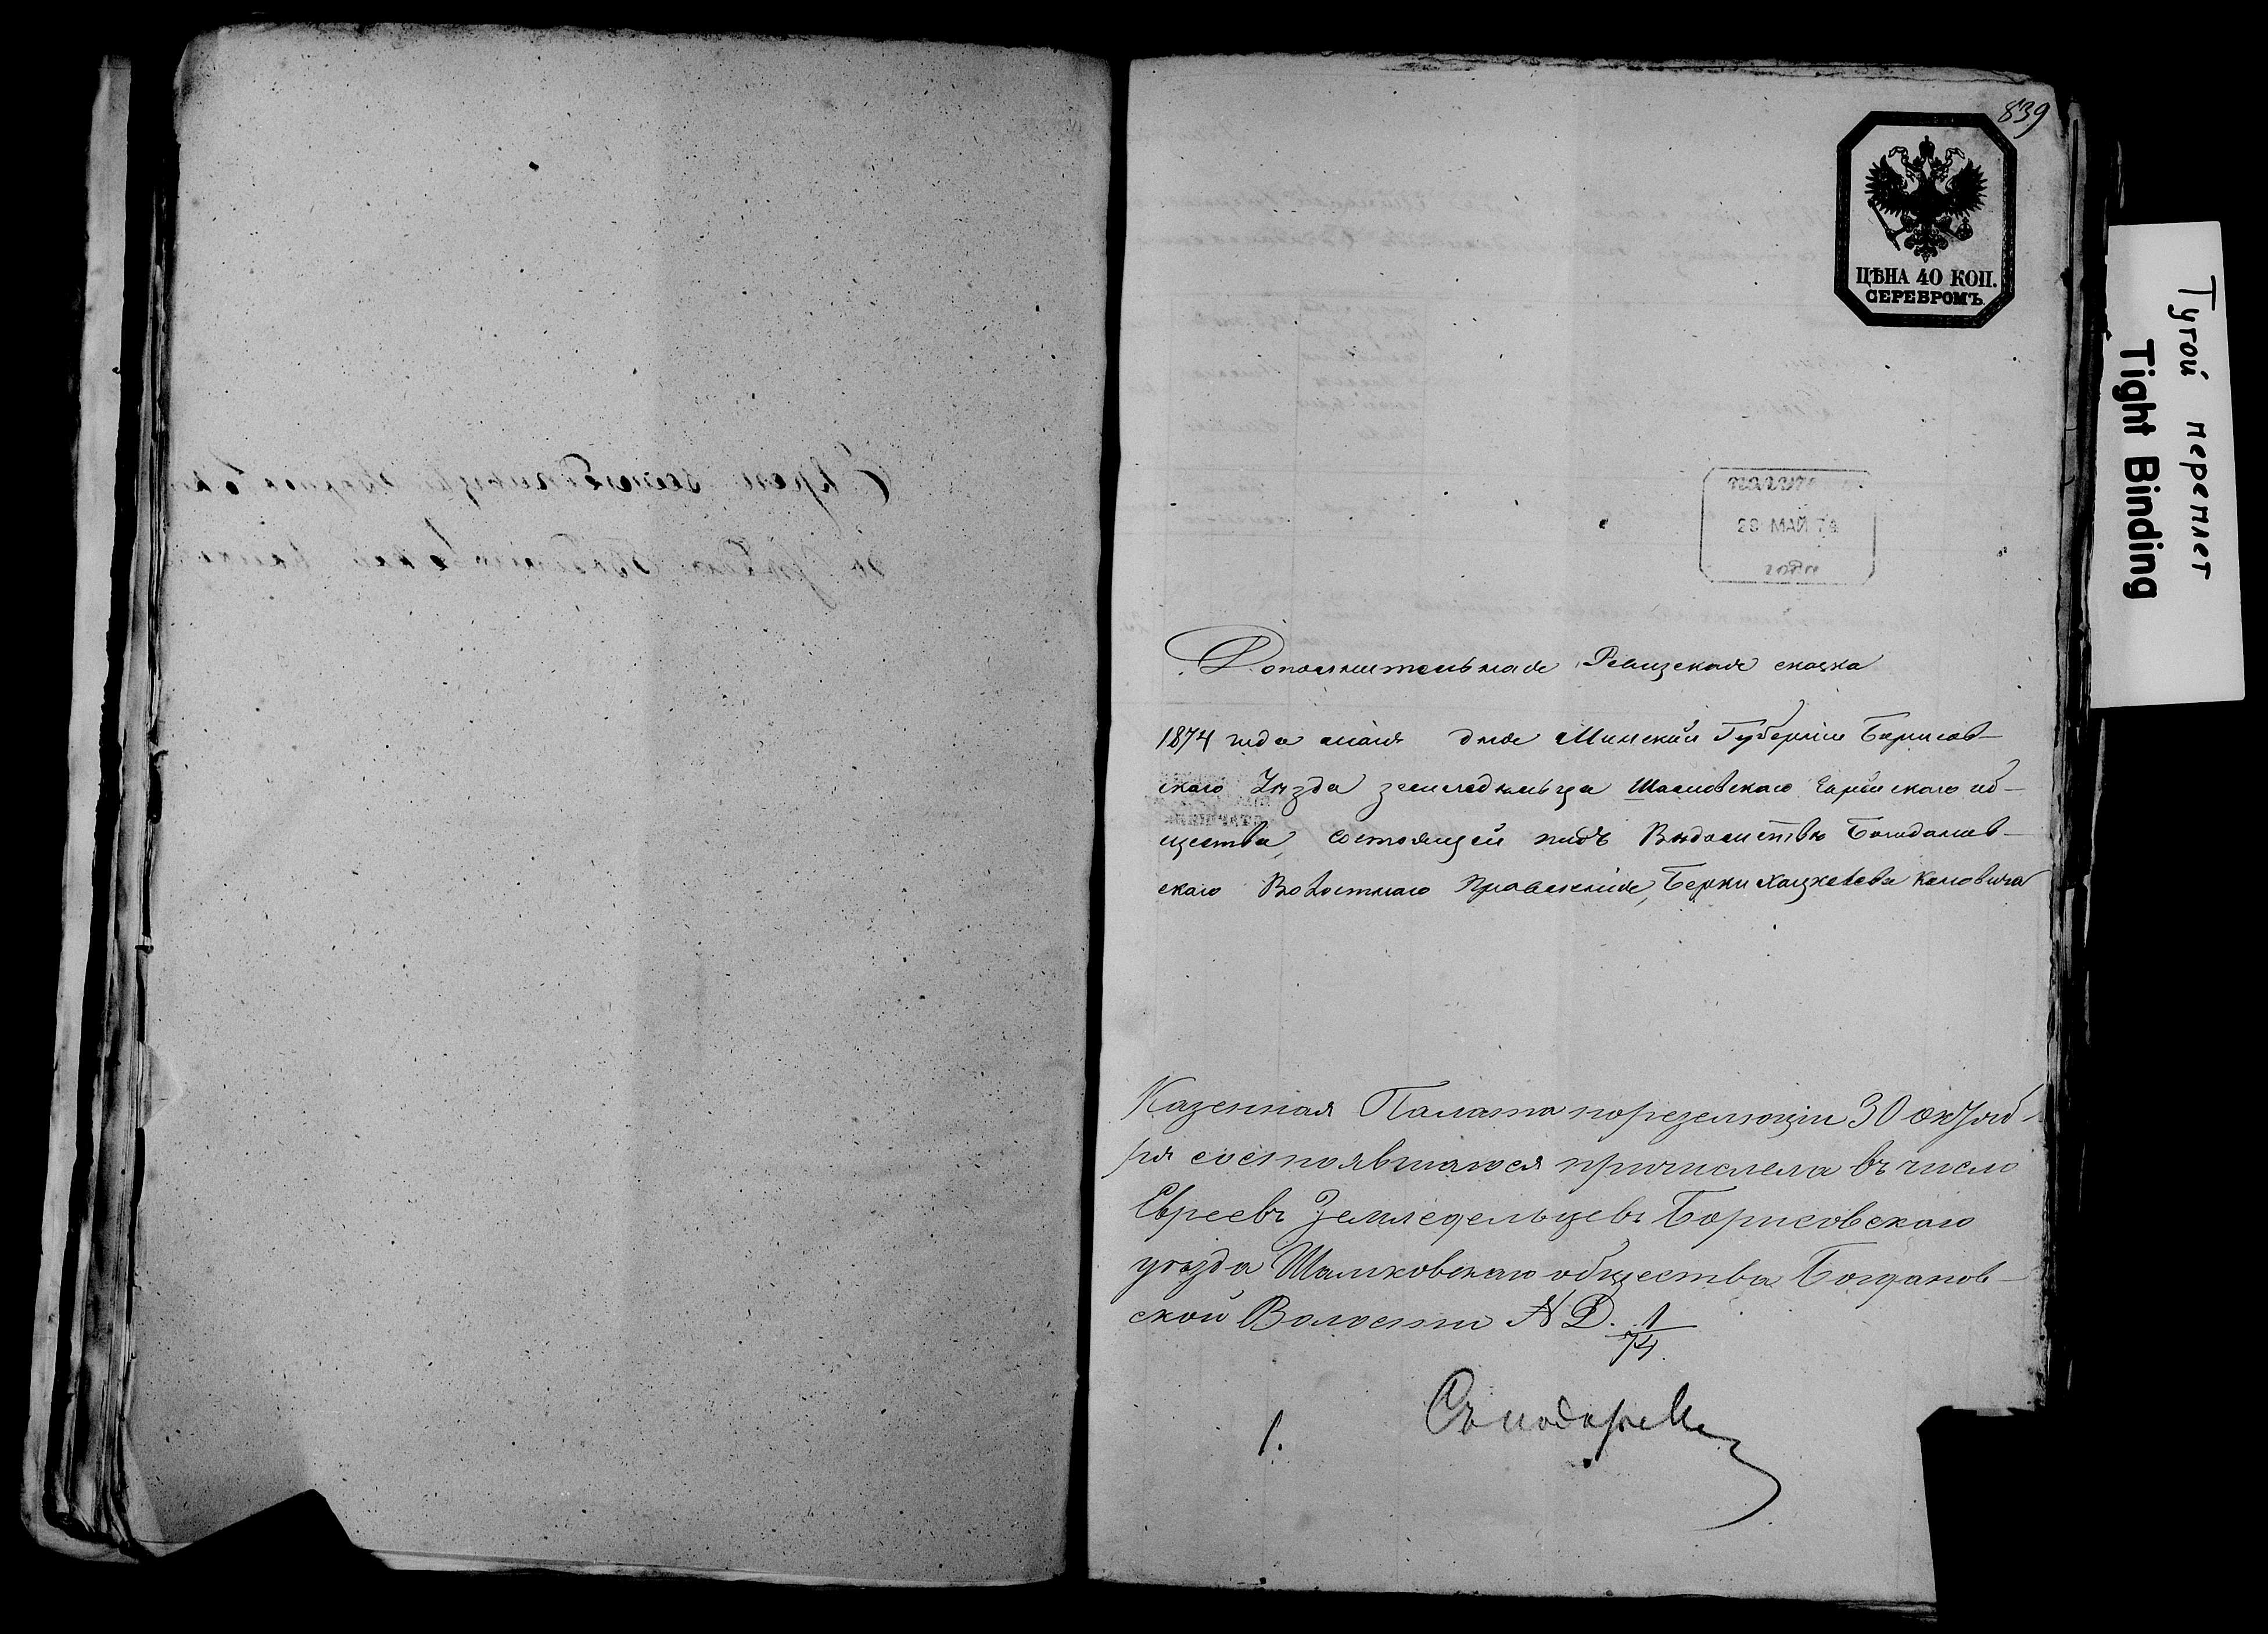 839
ЦѢНА 40 КОП.
СЕРЕБРОМЪ.
Тугой переплет
Tight Binding
28 МАЙ 74
года
Дополнительная Ревизская сказка
1874 года маія дня Минской Губерніи Борисов-
скаго Уѣзда земледѣльца об-
щества, состоящей подъ Вѣдомствѣ Богданов-
скаго Волостнаго Правленія, Берки Хацкелева
Казенная Палата порезелюціи 30 октяб-
ря состоявшагося причислела въ число
Евреевъ Земледельцевъ Борисовскаго
уѣзда Шамковскаго общества Богданов-
ской Волости № Д. 1/74.
1.